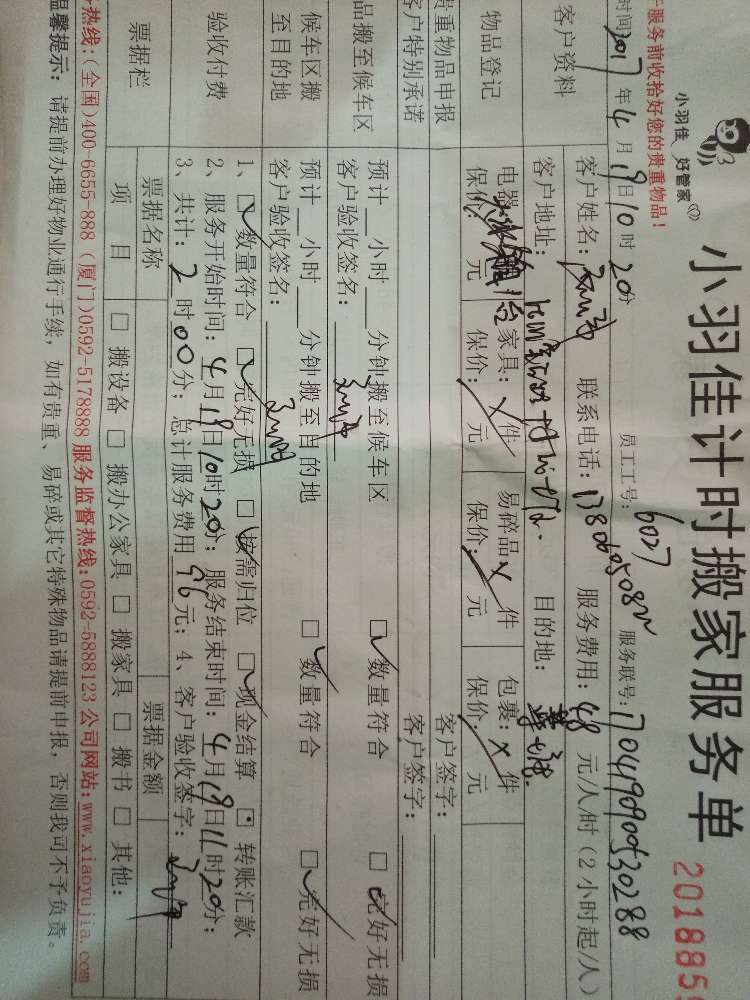 小羽佳计时搬家服务单
2018856
小羽佳 好管家
于服务前收拾好您的贵重物品!
时间2017年4月19日10时20分 员工工号:6027 服务联号:1704190900530288
客户资料 客户姓名: 联系电话:13806050802 服务费用:48 元/人/时(2小时起/人)
客户地址: 目的地:
物品登记 电器 1台 家具:×件 易碎品×件 包裹:×件
保价: 元 保价:/元 保价:/元 保价:/元
贵重物品申报 客户签字:
客户特别承诺 客户签字:
品搬至候车区 预计__小时__分钟搬至候车区 ☑数量符合 ☑完好无损
客户验收签名:
候车区搬至目的地 预计__小时__分钟搬至目的地 ☑数量符合 ☑完好无损
客户验收签名:
验收付费 1、☑数量符合 ☑完好无损 ☑按需归位 ☑现金结算 □转账汇款
2、服务开始时间:4月19日10时20分;服务结束时间:4月19日11时20分;
3、共计:2时00分;总计服务费用 96元;4、客户验收签字:
票据栏 票据名称 票据金额
项 目 □搬设备 □搬办公家具 □搬家具 □搬书 □其他:
热线:(全国)400-6655-888 (厦门)0592-5178888 服务监督热线:0592-5888123 公司网站:www.xiaoyujia.com
温馨提示:请提前办理好物业通行手续,如有贵重、易碎或其它特殊物品请提前申报,否则我司不予负责。